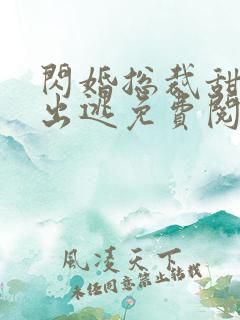 閃婚总裁甜
出逃免費閱
風凌天下
未经同意禁止转载